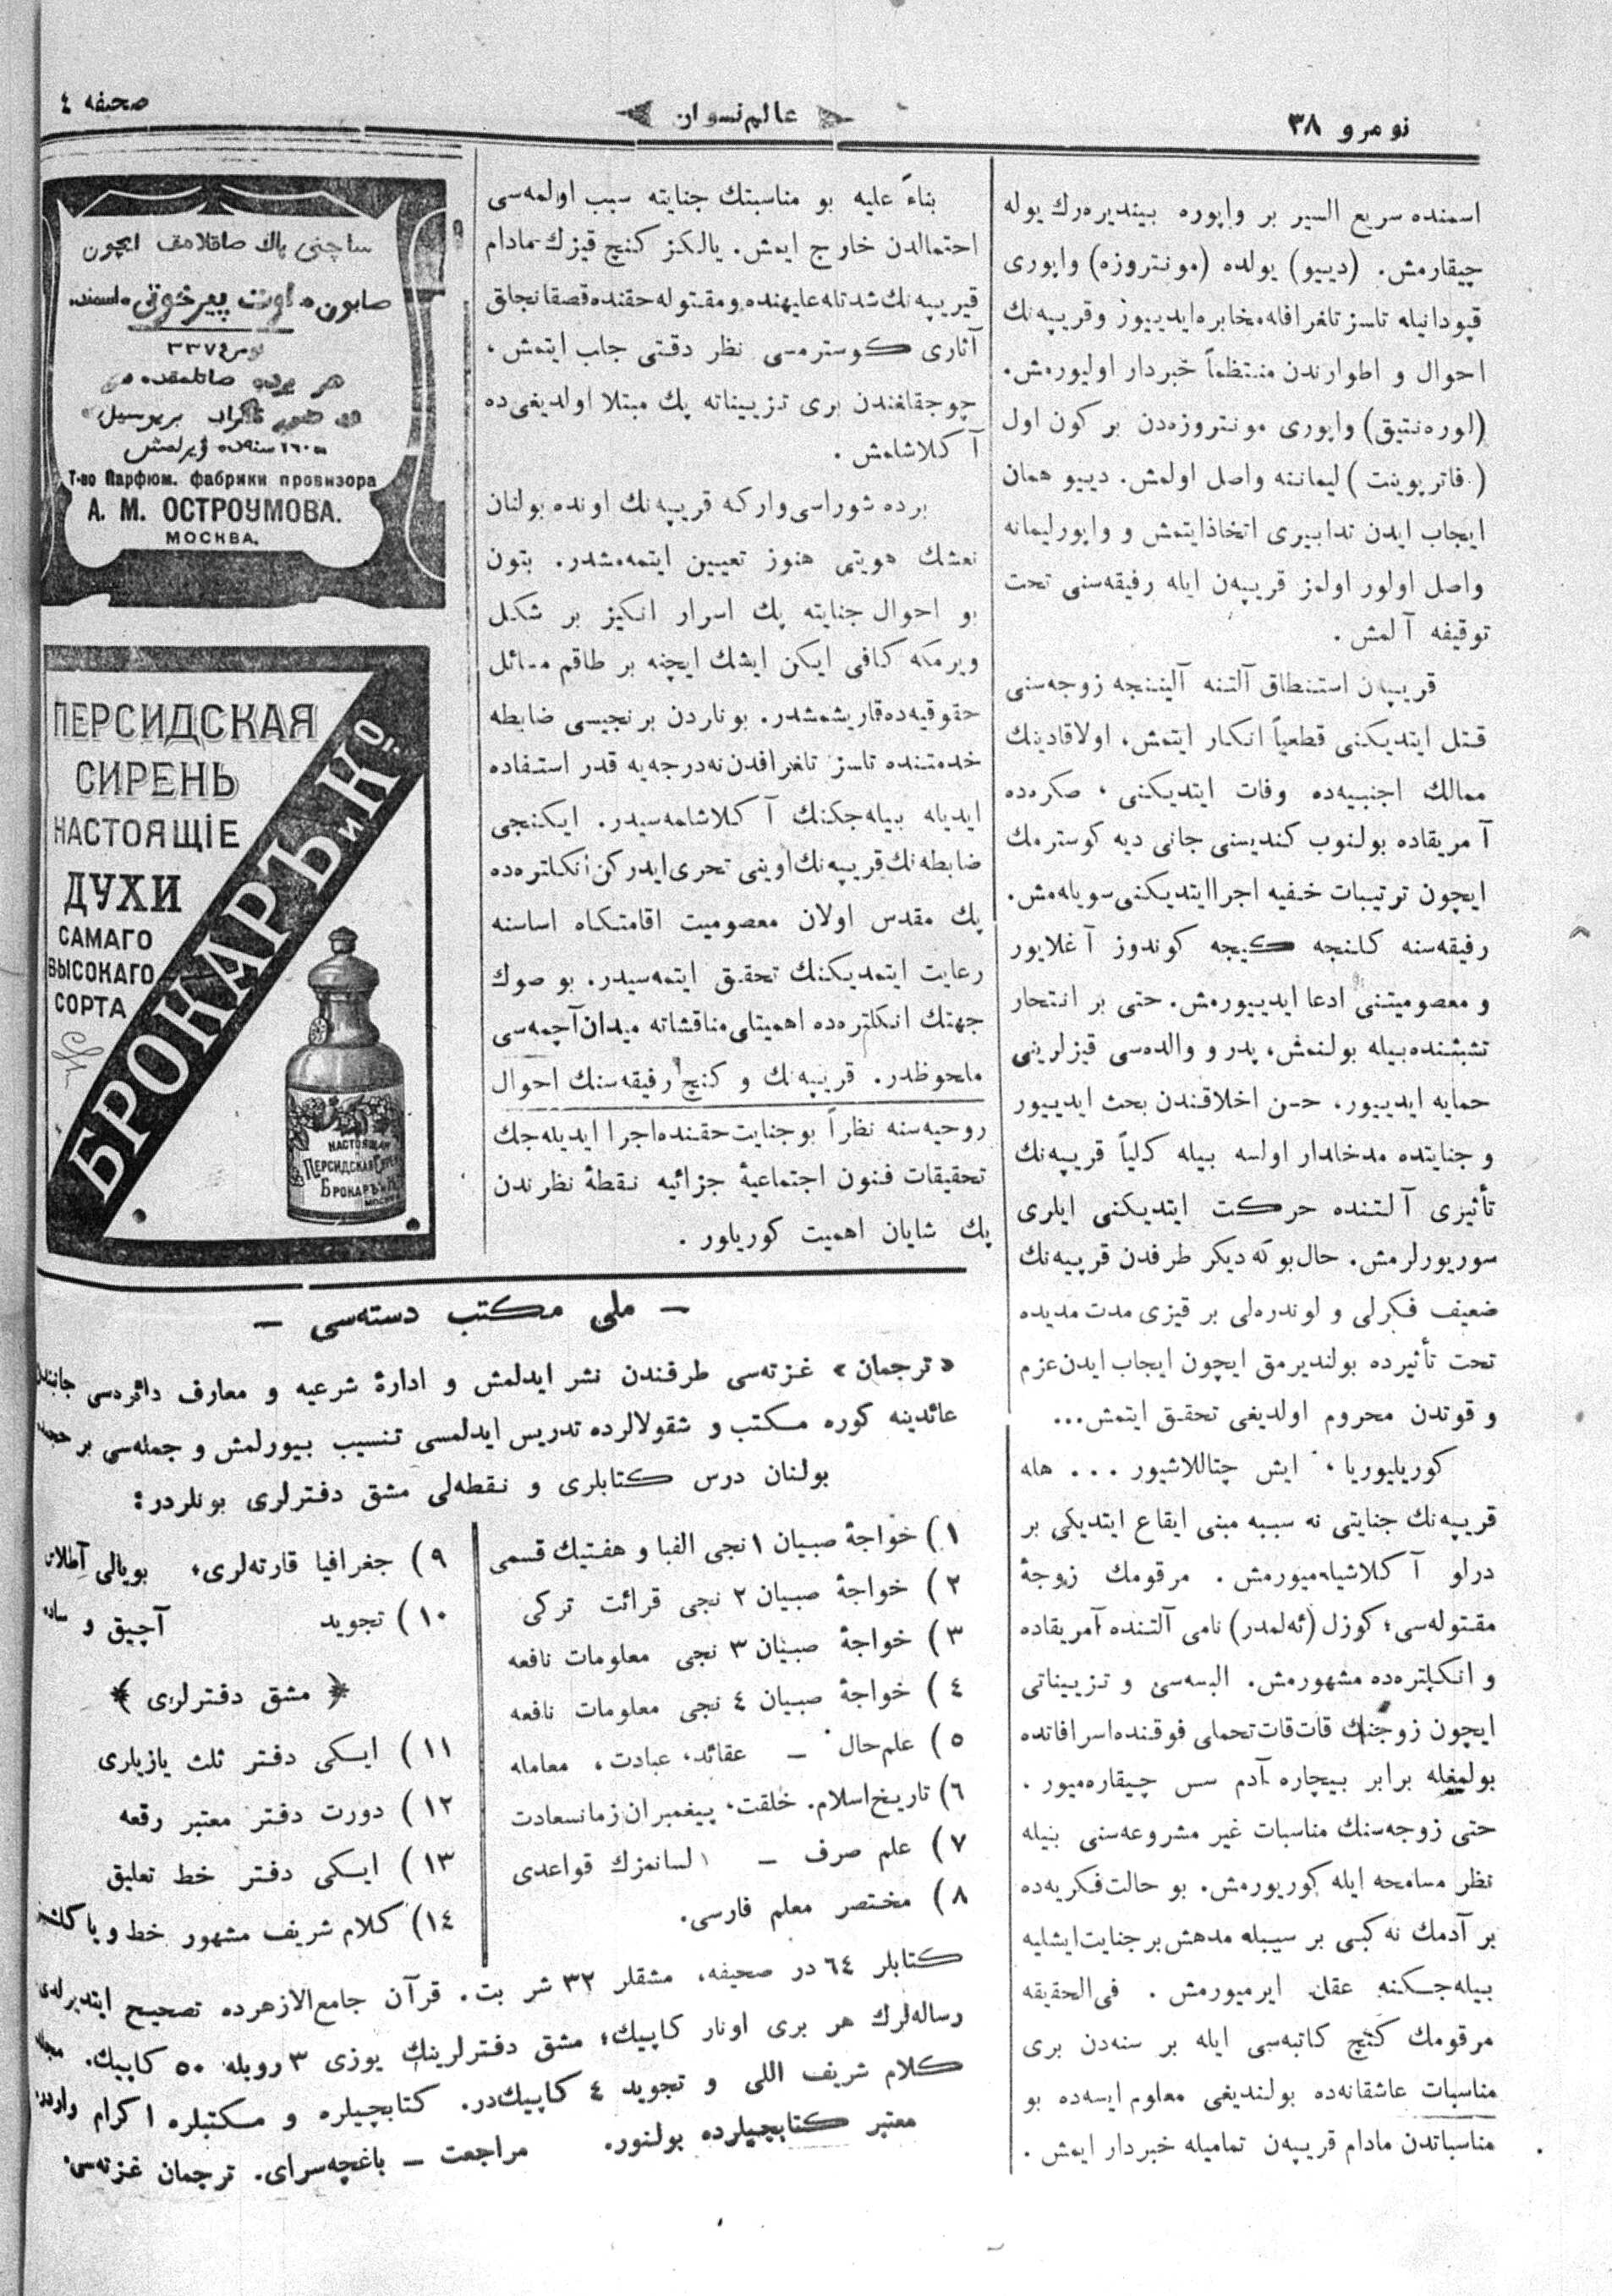 نومرو ۳۸
عالم نسوان
صحیفه ٤
اسمنده سریع السیر بر واپوره بیندیره‌رك یوله
چیقارمش. (دییو) یولده (مونتروزه) واپوری
قپودانیله تلسز تلغرافله مخابره ایدییور وقریپه‌نك
احوال و اطوارندن منتظماً خبردار اولیورمش.
(لوره‌نتیق) واپوری مونتروزه‌دن بر كون اول
(فاتریوینت) لیماننه واصل اولمش. دییو همان
ایجاب ایدن تدابیری اتخاذ ایتمش و واپور لیمانه
واصل اولور اولمز قریپه‌ن ایله رفیقه‌سنی تحت
توقیفه آلمش.
قریپه‌ن استنطاق آلتنه آلیننجه زوجه‌سنی
قتل ایتدیكنی قطعیاً انكار ایتمش، اولا قادینك
ممالك اجنبیه‌ده وفات ایتدیكنی، صكره‌ده
آمریقاده بولنوب كندیسنی جانی دیه كوسترمك
ایچون ترتیبات خفیه اجرا ایتدیكنی سویله‌مش.
رفیقه‌سنه كلنجه كیجه كوندوز آغلایور
و معصومیتنی ادعا ایدییورمش. حتی بر انتحار
تشبثنده بیله بولنمش، پدر و والده‌سی قیزلرینی
حمایه ایدییور، حسن اخلاقندن بحث ایدییور
و جنایتده مدخلدار اولسه بیله كلیاً قریپه‌نك
تأثیری آلتنده حركت ایتدیكنی ایلری
سوریورلرمش. حال بو كه دیكر طرفدن قریپه‌نك
ضعیف فكرلی و لوندره‌لی بر قیزی مدت مدیده
تحت تأثیرده بولندیرمق ایچون ایجاب ایدن عزم
و قوتدن محروم اولدیغی تحقق ایتمش...
كوریلیوریا، ایش چتاللاشیور ... هله
قریپه‌نك جنایتی نه سببه مبنی ایقاع ایتدیكی بر
درلو آكلاشیله‌میورمش. مرقومك زوجۀ
مقتوله‌سی؛ كوزل (ئه‌لمدر) نامی آلتنده آمریقاده
و انكلتره‌ده مشهورمش. البسه‌سی و تزییناتی
ایچون زوجنك قات قات تحملی فوقنده اسرافاتده
بولمغله برابر بیچاره آدم سس چیقاره‌میور.
حتی زوجه‌سنك مناسبات غیر مشروعه‌سنی بیله
نظر مسامحه ایله كوریورمش. بو حالت فكریه‌ده
بر آدمك نه كبی بر سببله مدهش بر جنایت ایشلیه
بیله‌جكنه عقل ایرمیورمش. فی الحقیقه
مرقومك كنچ كاتبه‌سی ایله بر سنه‌دن بری
مناسبات عاشقانه‌ده بولندیغی معلوم ایسه‌ده بو
مناسباتدن مادام قریپه‌ن تمامیله خبردار ایمش.
بناءً علیه بو مناسبتك جنایته سبب اولمه‌سی
احتمالدن خارج ایمش. یالكز كنچ قیزك مادام
قیریپه‌نك شدتله علیهنده و مقتوله حقنده قصقانجلق
آثاری كوسترمسی نظر دقتی جلب ایتمش،
چوجقلغندن بری تزییناته پك مبتلا اولدیغی ده
آكلاشلمش.
برده شوراسی واركه قریپه‌نك اونده بولنان
نعشك هویتی هنوز تعیین ایتمه‌مشدر. بتون
بو احوال جنایته پك اسرار انكیز بر شكل
ویرمكه كافی ایكن ایشك ایچنه بر طاقم مسائل
حقوقیه‌ده قاریشمشدر. بونلردن برنجیسی ضابطه
خدمتنده تلسز تلغرافدن نه درجه‌یه قدر استفاده
ایدیله بیله‌جكنك آكلاشلمه‌سیدر. ایكنجی
ضابطه‌نك قریپه‌نك اوینی تحری ایدركن انكلتره‌ده
پك مقدس اولان معصومیت اقامتكاه اساسنه
رعایت ایتمدیكنك تحقق ایتمه‌سیدر. بو صوك
جهتك انكلتره‌ده اهمیتلی مناقشاته میدان آچمه‌سی
ملحوظدر. قریپه‌نك و كنچ رفیقه‌سنك احوال
روحیه‌سنه نظراً بو جنایت حقنده اجرا ایدیله‌جك
تحقیقات فنون اجتماعیۀ جزائیه نقطۀ نظرندن
پك شایان اهمیت كوریلور.
ساچنی پاك صاقلامق ایچون
صابون
نومرۀ ۳۳۷
هر یرده صاتلمقده در
Т-во Парфюм. фабрики провизора
А. М. ОСТРОУМОВА.
МОСКВА.
ПЕРСИДСКАЯ
СИРЕНЬ
НАСТОЯЩІЕ
ДУХИ
САМАГО
ВЫСОКАГО
СОРТА
БРОКАРЪ и Ко.
НАСТОЯЩАЯ
ПЕРСИДСКАЯ СИРЕНЬ
БРОКАРЪ и Ко
МОСКВА
— ملی مكتب دسته‌سی —
«ترجمان» غزته‌سی طرفندن نشر ایدلمش و ادارۀ شرعیه و معارف دائره‌سی جانبندن
عائدینه كوره مكتب و شقولالرده تدریس ایدلمسی تنسیب بیورلمش و جمله‌سی بر حجمده
بولنان درس كتابلری و نقطه‌لی مشق دفترلری بونلردر:
۱) خواجۀ صبیان ۱ نجی الفبا و هفتیك قسمی
۲) خواجۀ صبیان ۲ نجی قرائت تركی
۳) خواجۀ صبیان ۳ نجی معلومات نافعه
٤) خواجۀ صبیان ٤ نجی معلومات نافعه
٥) علم حال — عقائد، عبادت، معامله
٦) تاریخ اسلام. خلقت، پیغمبران زمانسعادت
۷) علم صرف — لسانمزك قواعدی
۸) مختصر معلم فارسی.
۹) جغرافیا قارته‌لری، بویالی آطلاس
۱۰) تجوید آچیق و ساده
﴿ مشق دفترلری ﴾
۱۱) ایكی دفتر ثلث یازیلری
۱۲) دورت دفتر معتبر رقعه
۱۳) ایكی دفتر خط تعلیق
۱٤) كلام شریف مشهور خط و یا كلشر
كتابلر ٦٤ در صحیفه، مشقلر ۳۲ شر بت. قرآن جامع الازهرده تصحیح ایتدیرلدی
رساله‌لرك هر بری اونار كاپیك؛ مشق دفترلرینك یوزی ۳ روبله ٥۰ كاپیك.
كلام شریف اللی و تجوید ٤ كاپیك‌در. كتابچیلره و مكتبلره اكرام واردر.
معتبر كتابچیلرده بولنور. مراجعت — باغچه‌سرای. ترجمان غزته‌سی.